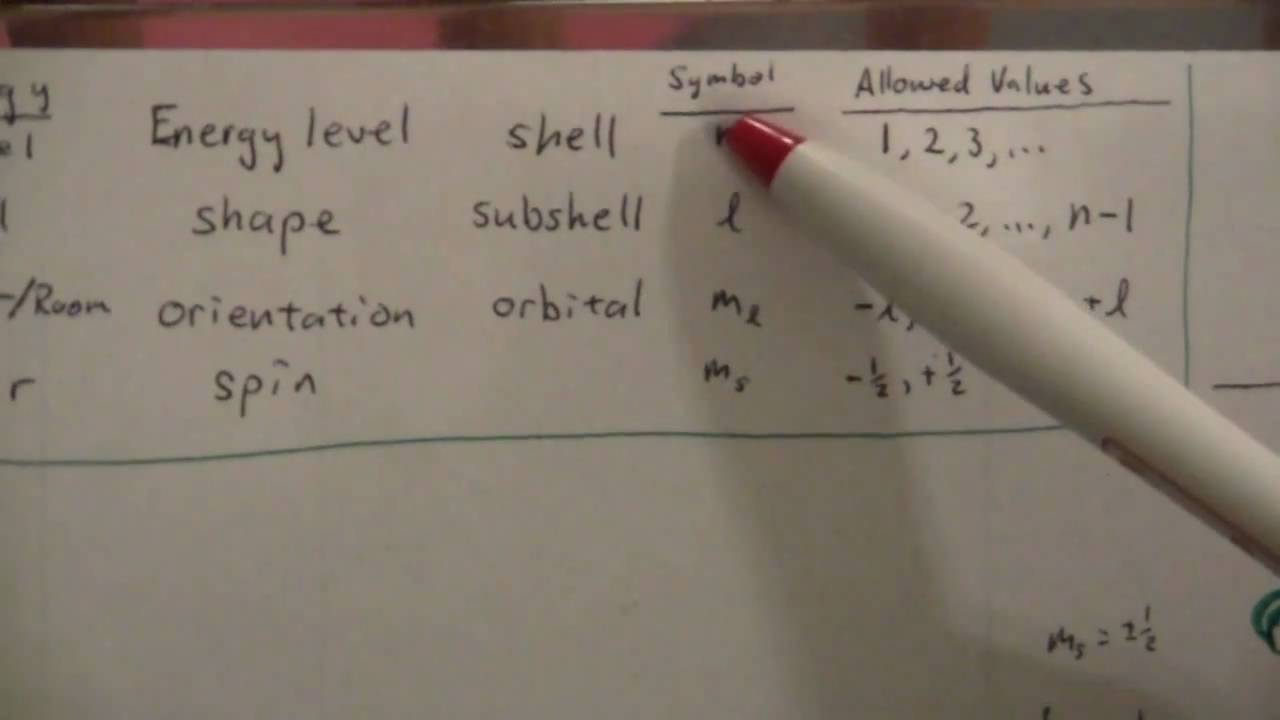 gy Symbol Allowed Values
el Energy level shell 1, 2, 3, ...
l shape subshell l 2, ..., n-1
-/Room orientation orbital mₗ -l, +l
r spin mₛ -½, +½
mₛ = ±½